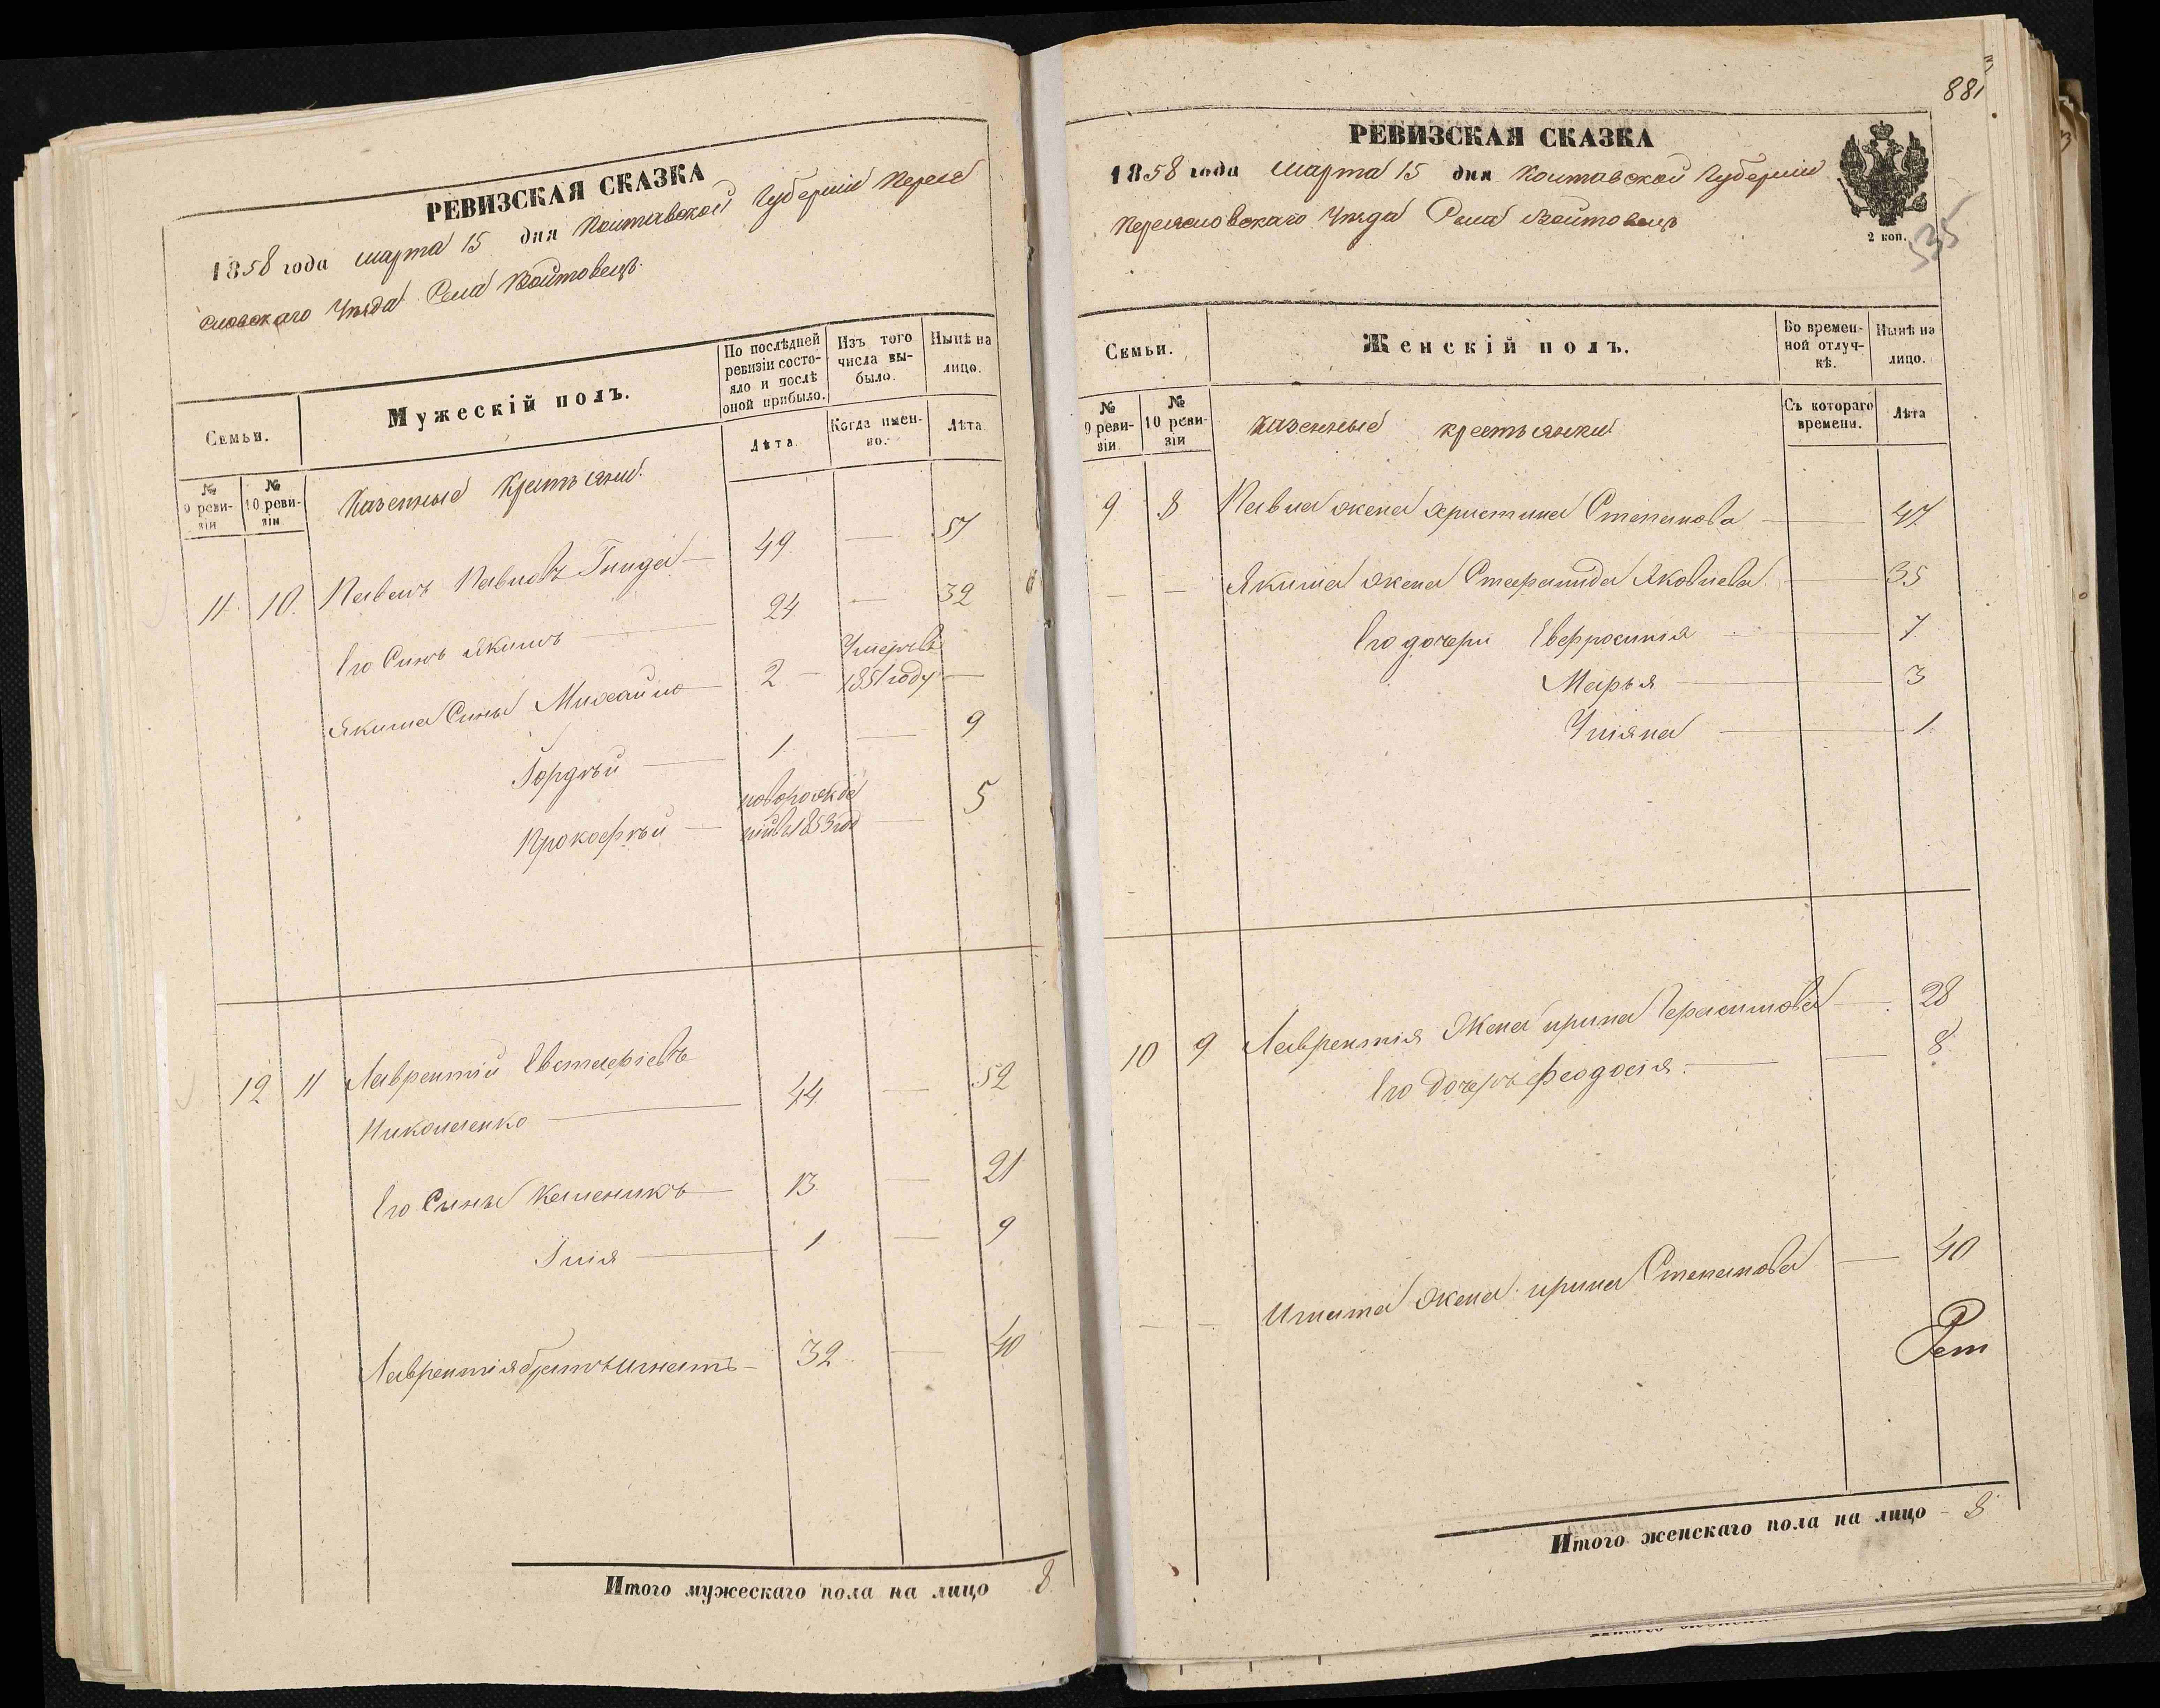 РЕВИЗСКАЯ СКАЗКА
1858 года марта 15 дня Полтавской Губернии Перея
словскаго Уезда Села Войтовецъ
Семьи.
Мужескій полъ.
По послѣдней ревизіи состояло и послѣ оной прибыло.
Изъ того числа выбыло.
Нынѣ на лицо.
Лѣта.
Когда именно.
Лѣта.
№ 9 ревизіи
№ 10 ревизіи
Казенные Крестьяни.
11. 10. Павелъ Павловъ Гнида — 49. — 57
Его Синъ Якимъ — 24 — 32
Якима Сины Михайло — 2 — Умеръ въ 1851 году —
Гордѣй — 1. — 9
Прокофѣй — новорожденій въ 1853 год — 5
12 11 Лаврентій Евстафіевъ
Николаенко — 44 — 52
Его Сыны Каленикъ — 13. — 21
Ілія — 1 — 9
Лаврентія братъ Игнатъ — 32 — 40
Итого мужескаго пола на лицо 8.
881
РЕВИЗСКАЯ СКАЗКА
1858 года марта 15 дня Полтавской Губерніи
Переясловскаго Уезда Села Войтовецъ
2 коп.
535
Семьи.
Женскій полъ.
Во временной отлучкѣ.
Нынѣ на лицо.
Съ котораго времени.
Лѣта
№ 9 ревизіи.
№ 10 ревизіи
казенные крестьянки.
9 8 Павла жена Христина Степанова — 47
— — Якима жена Стефанида Яковлева — 35
Его дочери Евфросинія — 7
Марья — 3
Уліяна — 1
10 9 Лаврентія Жена ирина Герасимова — 28
Его Дочеръ Феодосія. — 8.
— — Игната жена ирина Степанова — 40
Итого женскаго пола на лицо — 8